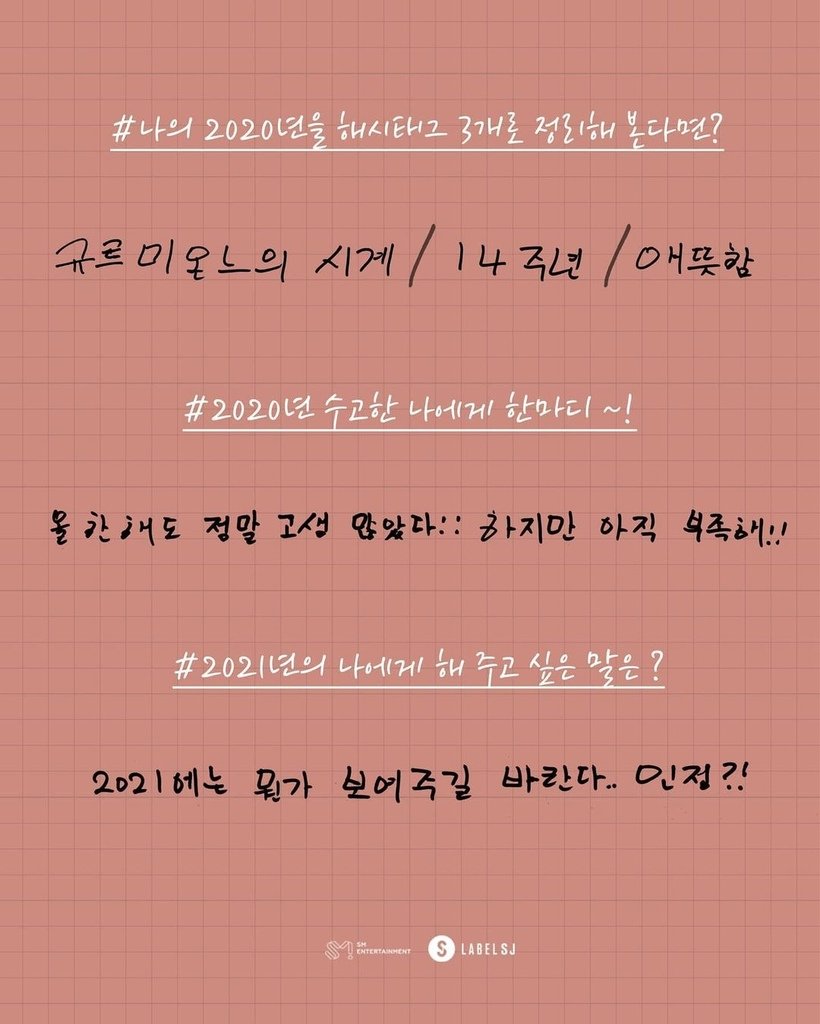 #나의 2020년을 해시태그 3개로 정리해 본다면?
규르미온느의 시계 / 14주년 / 애뜻함
#2020년 수고한 나에게 한마디 ~!
올 한해도 정말 고생 많았다:: 하지만 아직 부족해!!
#2021년의 나에게 해 주고 싶은 말은?
2021에는 뭔가 보여주길 바란다.. 인정?!
SM ENTERTAINMENT
S LABELSJ